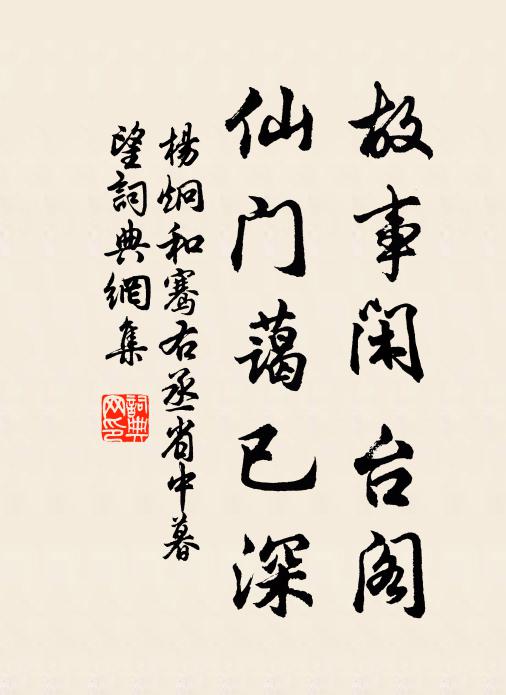 故事闲台阁
仙门蔼已深
楊炯和騫右丞省中暮
望詞典網集
詞典網印